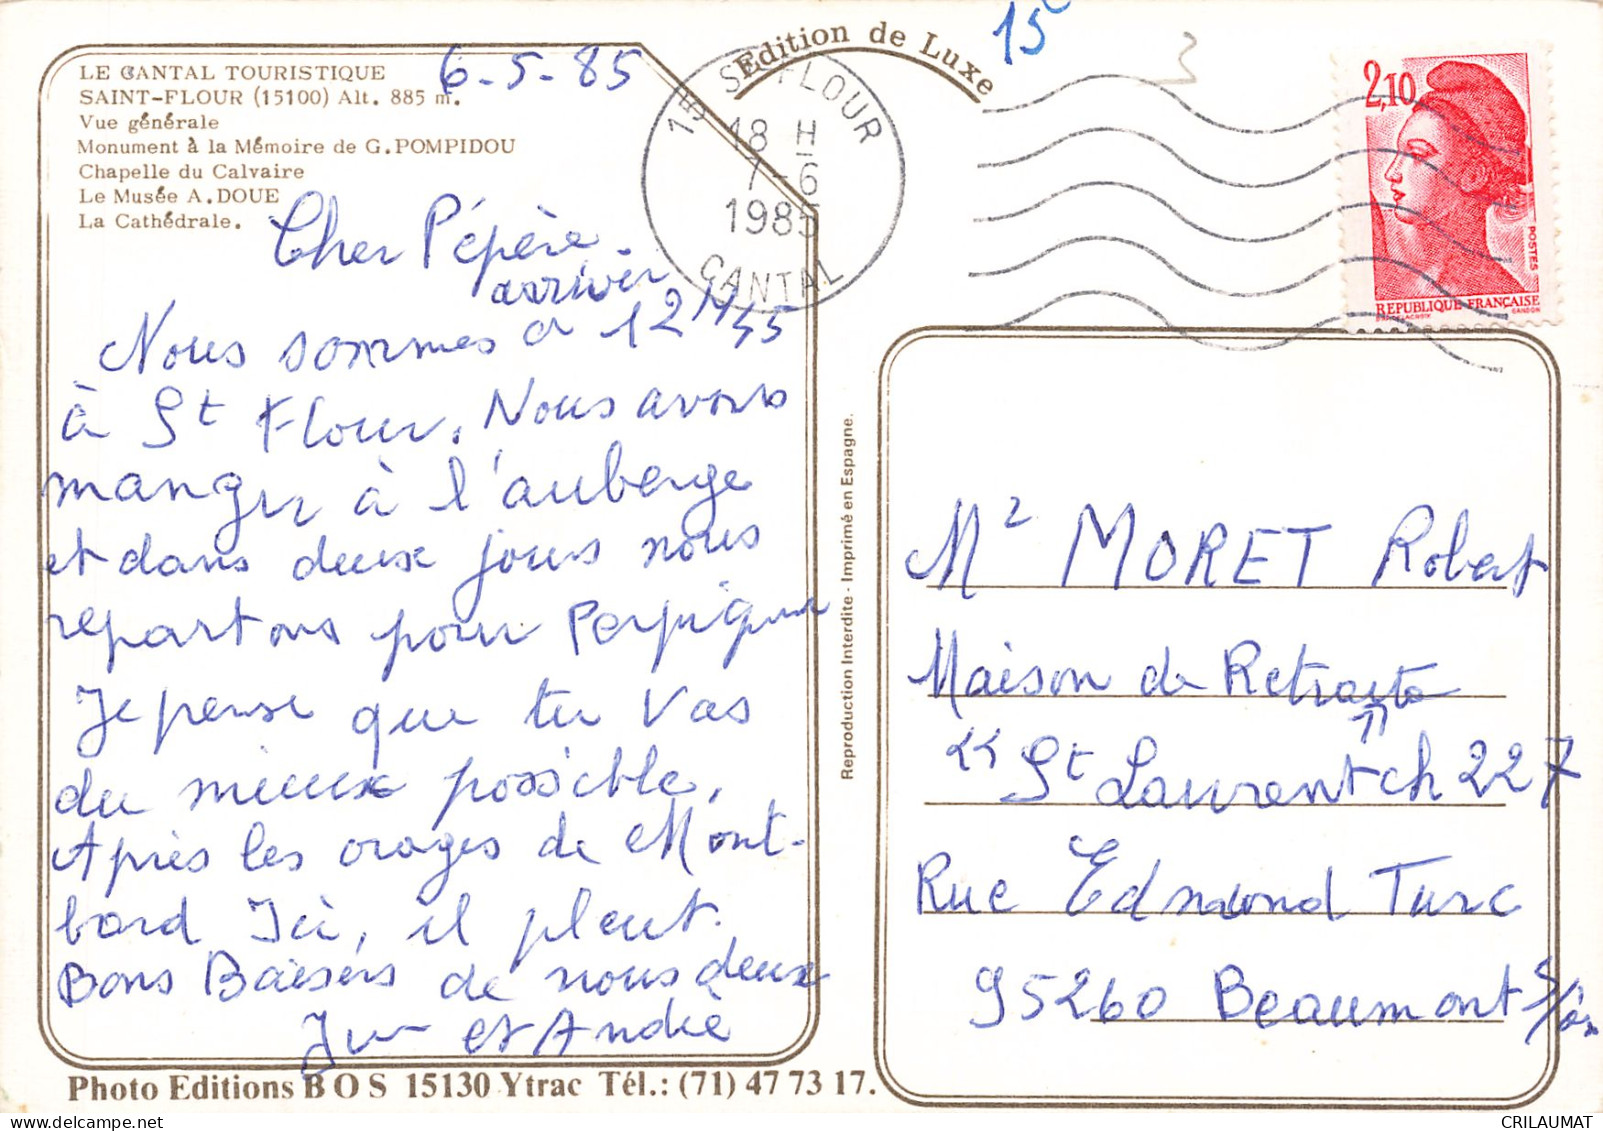 LE CANTAL TOURISTIQUE
SAINT-FLOUR (15100) Alt. 885 m.
Vue générale
Monument à la Mémoire de G.POMPIDOU
Chapelle du Calvaire
Le Musée A.DOUE
La Cathédrale.
6-5-85
Edition de Luxe
15 ST FLOUR
18 H
7-6
1985
CANTAL
15c
3
2,10
POSTES
REPUBLIQUE FRANÇAISE
GANDON
Cher Pépère.
arriver
Nous sommes a 12H45
à St Flour. Nous avons
manger à l'auberge
et dans deux jours nous
repartons pour Perpignan
Je pense que tu vas
du mieux possible.
Après les orages de Mont-
bard Ici, il pleut.
Bons Baisers de nous deux
et André
Photo Editions B O S 15130 Ytrac Tél.: (71) 47 73 17.
Reproduction Interdite - Imprimé en Espagne.
Mr MORET Robert
Maison de Retraite
"St Laurent" ch 227
Rue Edmond Turc
95260 Beaumont S/Oise
CRILAUMAT